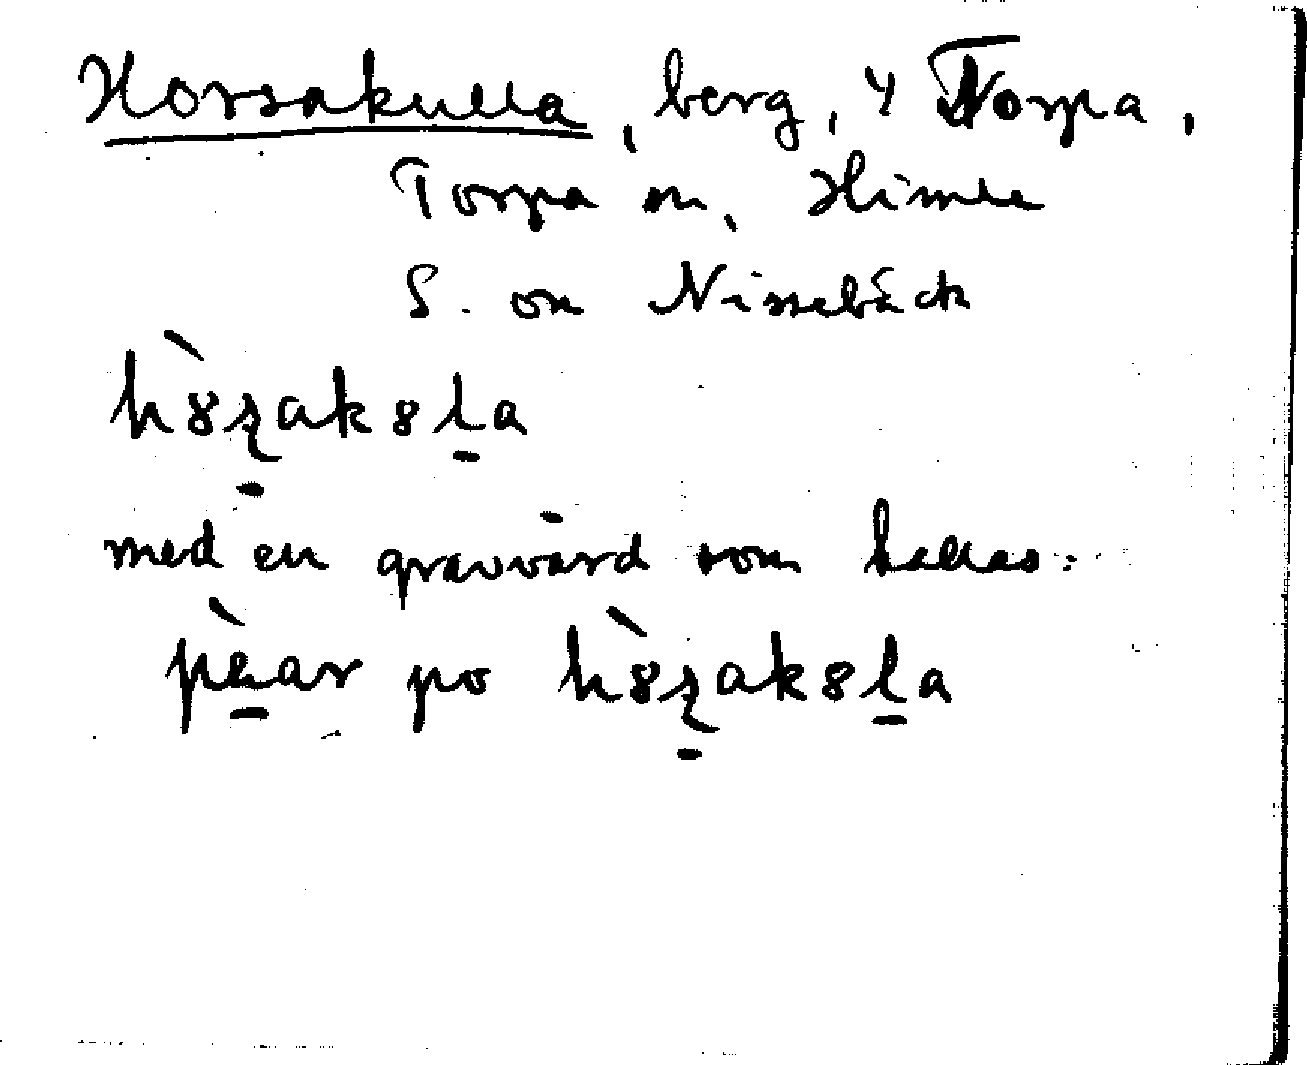 Horsakulla, berg, 4 Torpa,
Torpa sn, Himle
S. om Nissebäck
hòʂakɞla
med en gravvård som kallas:
pèar po hòʂakɞla